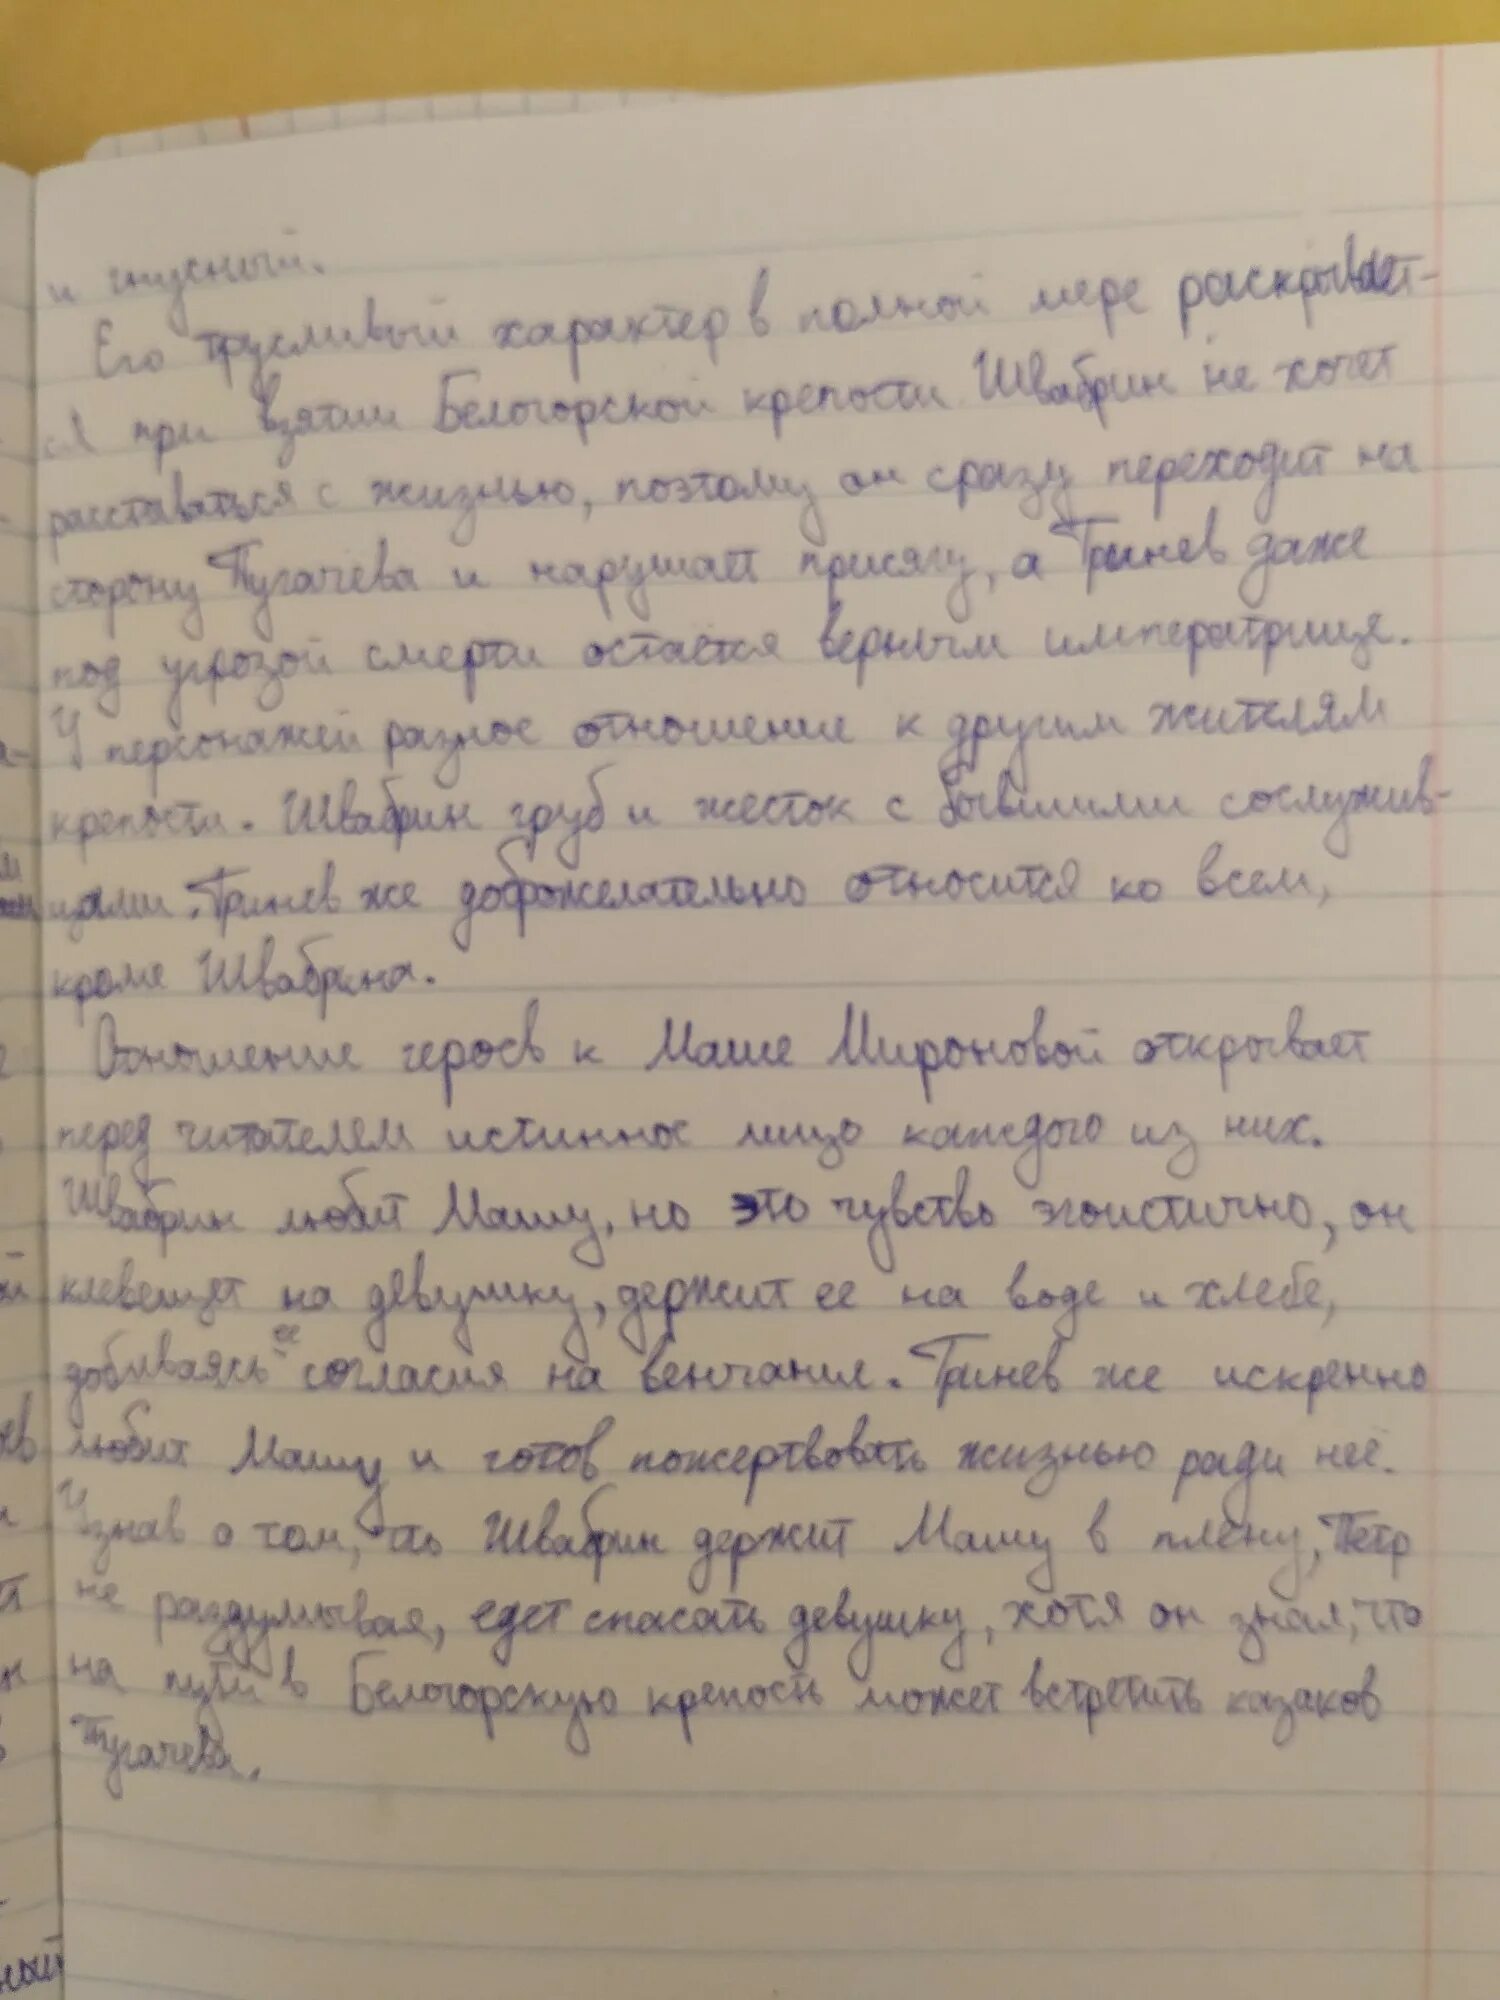 и гнусный.
Его трусливый характер в полной мере раскрывает-
ся при взятии Белогорской крепости. Швабрин не хочет
расставаться с жизнью, поэтому он сразу переходит на
сторону Пугачёва и нарушает присягу, а Гринев даже
под угрозой смерти остаётся верным императрице.
У персонажей разное отношение к другим жителям
крепости. Швабрин груб и жесток с бывшими сослужив-
цами. Гринев же доброжелательно относится ко всем,
кроме Швабрина.
Отношение героев к Маше Мироновой открывает
перед читателем истинное лицо каждого из них.
Швабрин любит Машу, но это чувство эгоистично, он
клевещет на девушку, держит ее на воде и хлебе,
добиваясь ее согласия на венчание. Гринев же искренно
любит Машу и готов пожертвовать жизнью ради неё.
Узнав о том, что Швабрин держит Машу в плену, Пётр
не раздумывая, едет спасать девушку, хотя он знал, что
на пути в Белогорскую крепость может встретить казаков
Пугачёва.